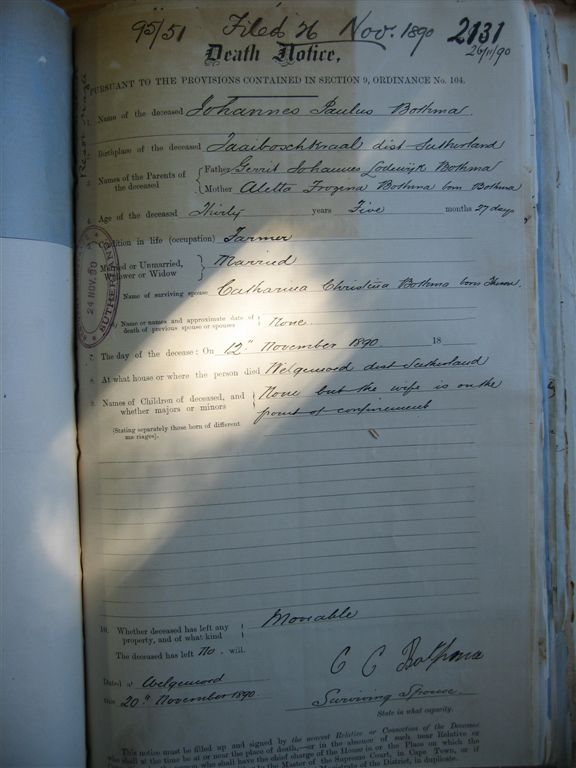 95/51 Filed 26 Nov. 1890 2131
26/11/90
Death Notice,
PURSUANT TO THE PROVISIONS CONTAINED IN SECTION 9, ORDINANCE No. 104.
1. Name of the deceased Johannes Paulus Bothma.
2. Birthplace of the deceased Jaaiboschkraal dist Sutherland
3. Names of the Parents of the deceased { Father Gerrit Johannes Lodewyk Bothma
Mother Aletta Bothma born Bothma
4. Age of the deceased Thirty years Five months 27 days
5. Condition in life (occupation) Farmer
6. Married or Unmarried, Widower or Widow } Married
Name of surviving spouse Catharina Christina Bothma born
(b) Name or names, and approximate date of death of previous spouse or spouses { None.
7. The day of the decease: On 12th November 1890. 18
8. At what house or where the person died Welgemoed dist Sutherland
9. Names of Children of deceased, and whether majors or minors { None but the wife is on the
point of confinement
(Stating separately those born of different marriages).
10. Whether deceased has left any property, and of what kind } Moveable
The deceased has left No. will.
Dated at Welgemoed
this 20th November 1890
C C Bothma
Surviving Spouse.
State in what capacity.
24 NOV. 90
SUTHERLAND
This notice must be filled up and signed by the nearest Relative or Connection of the Deceased
who shall at the time be at or near the place of death,—or in the absence of such near Relative or
person who shall have the chief charge of the House in or the Place on which the
to the Master of the Supreme Court, in Cape Town, or if
of the District, in duplicate.